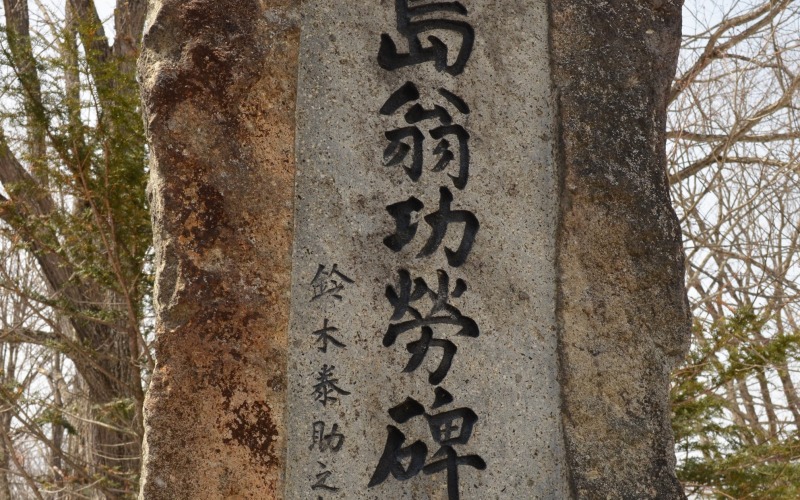 島翁功労碑
鈴木泰助之